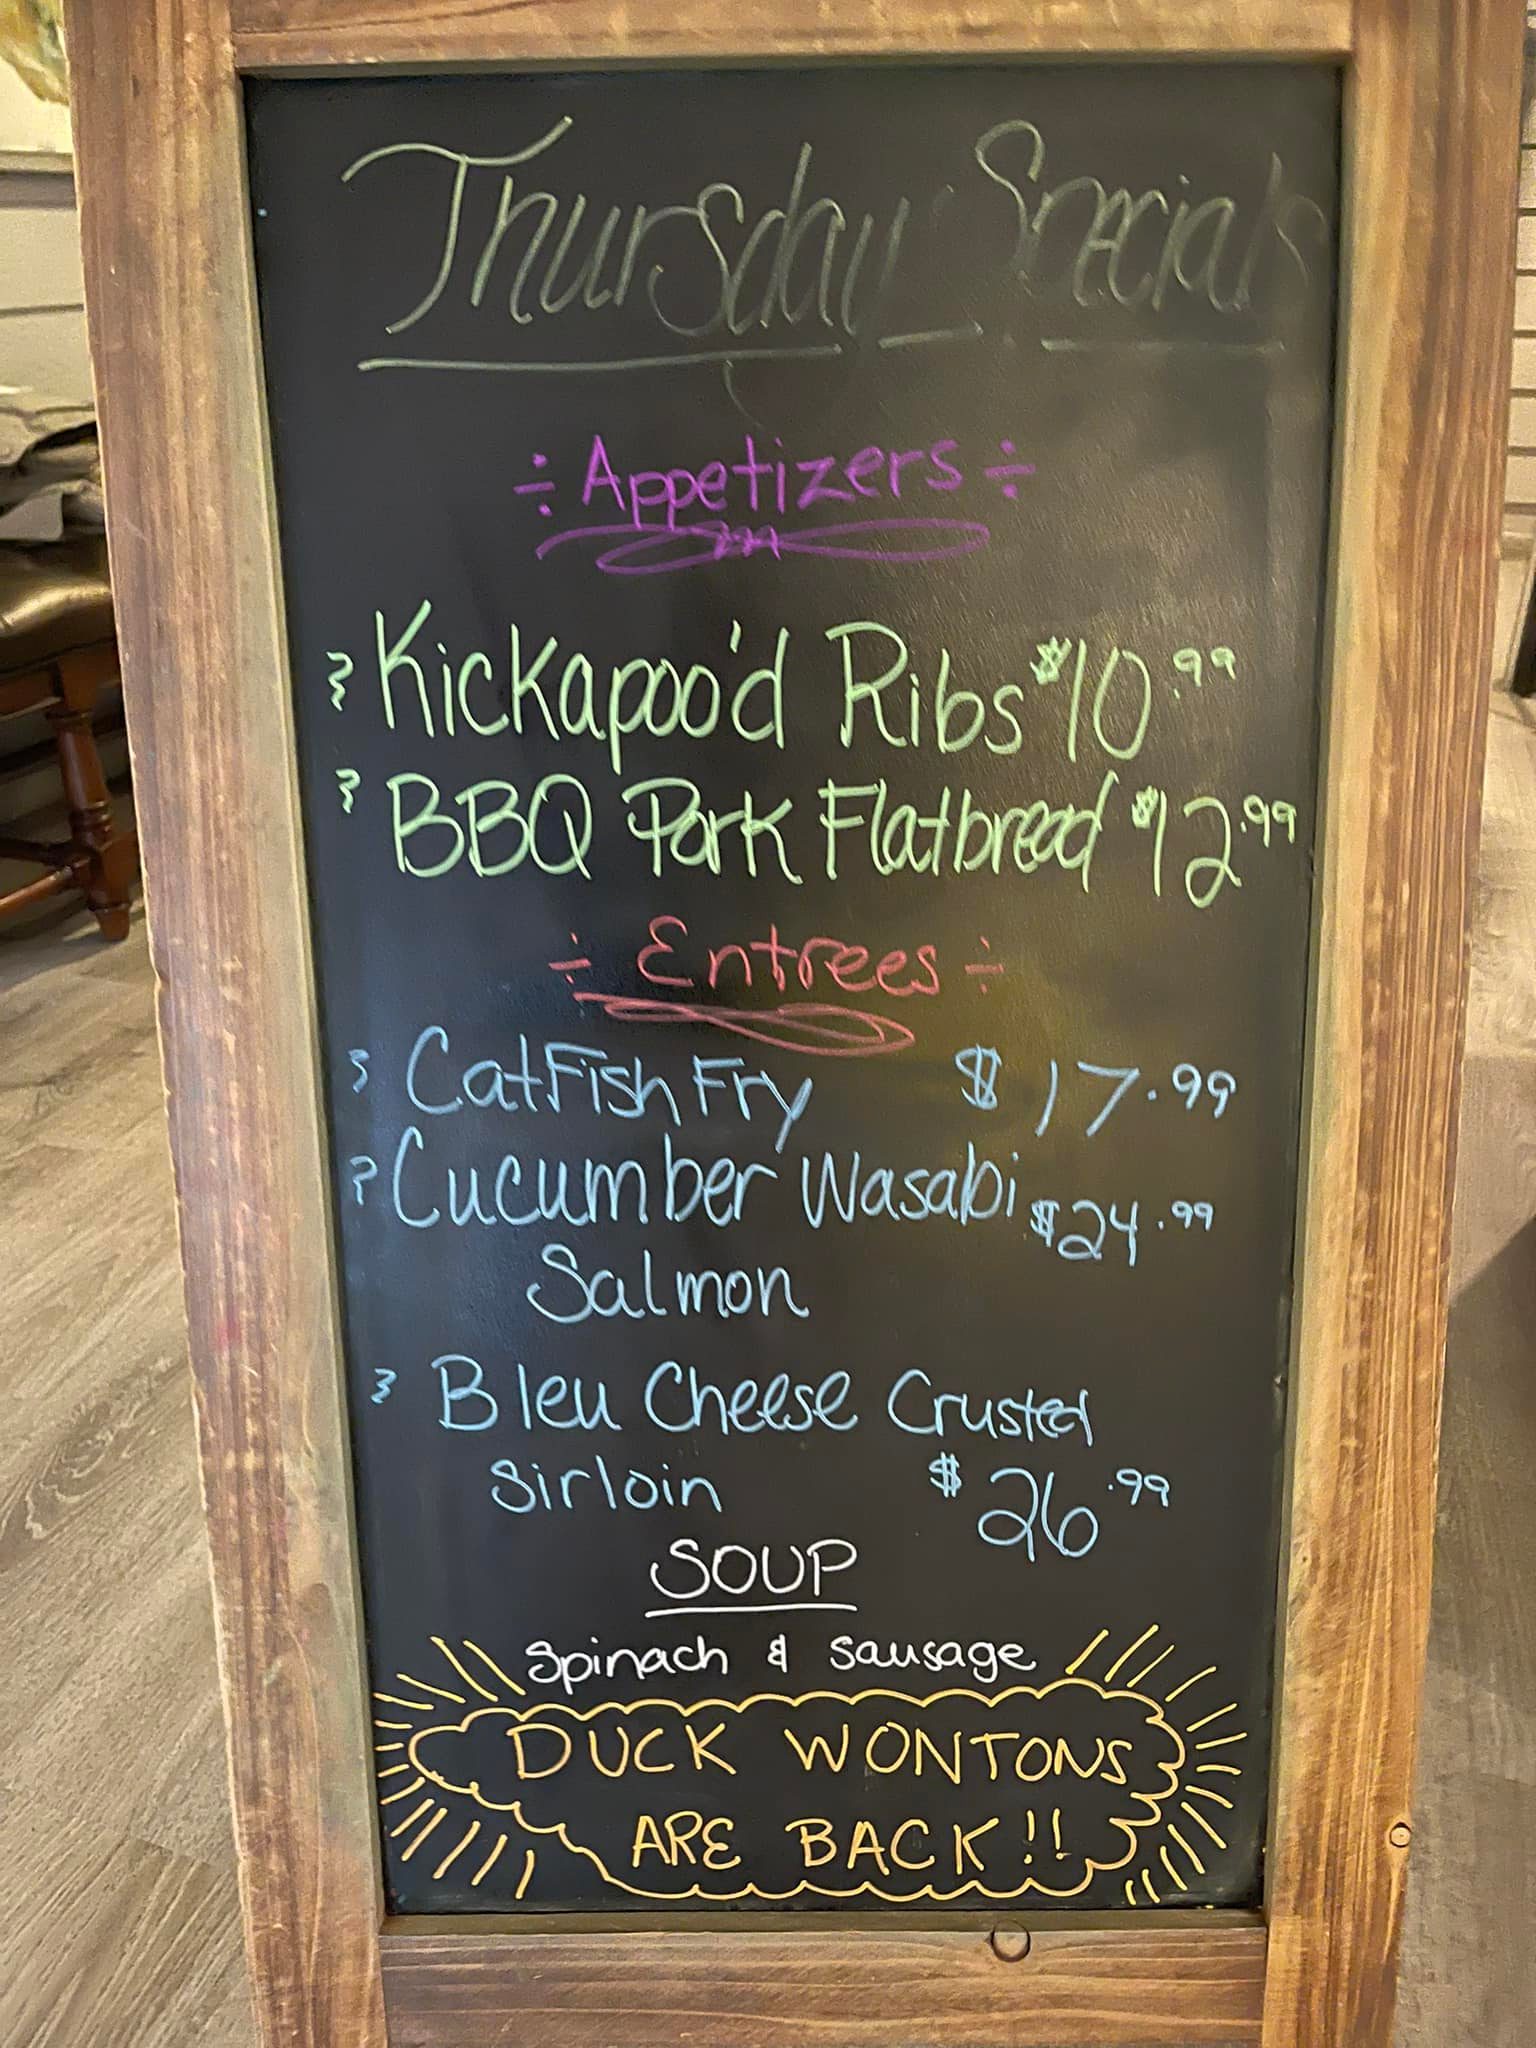 Thursday Specials
÷ Appetizers ÷
Kickapoo'd Ribs $10.99
BBQ Pork Flatbread $12.99
÷ Entrees ÷
CatFish Fry $17.99
Cucumber Wasabi $24.99
Salmon
Bleu Cheese Crusted
Sirloin $26.99
SOUP
Spinach & Sausage
DUCK WONTONS
ARE BACK!!